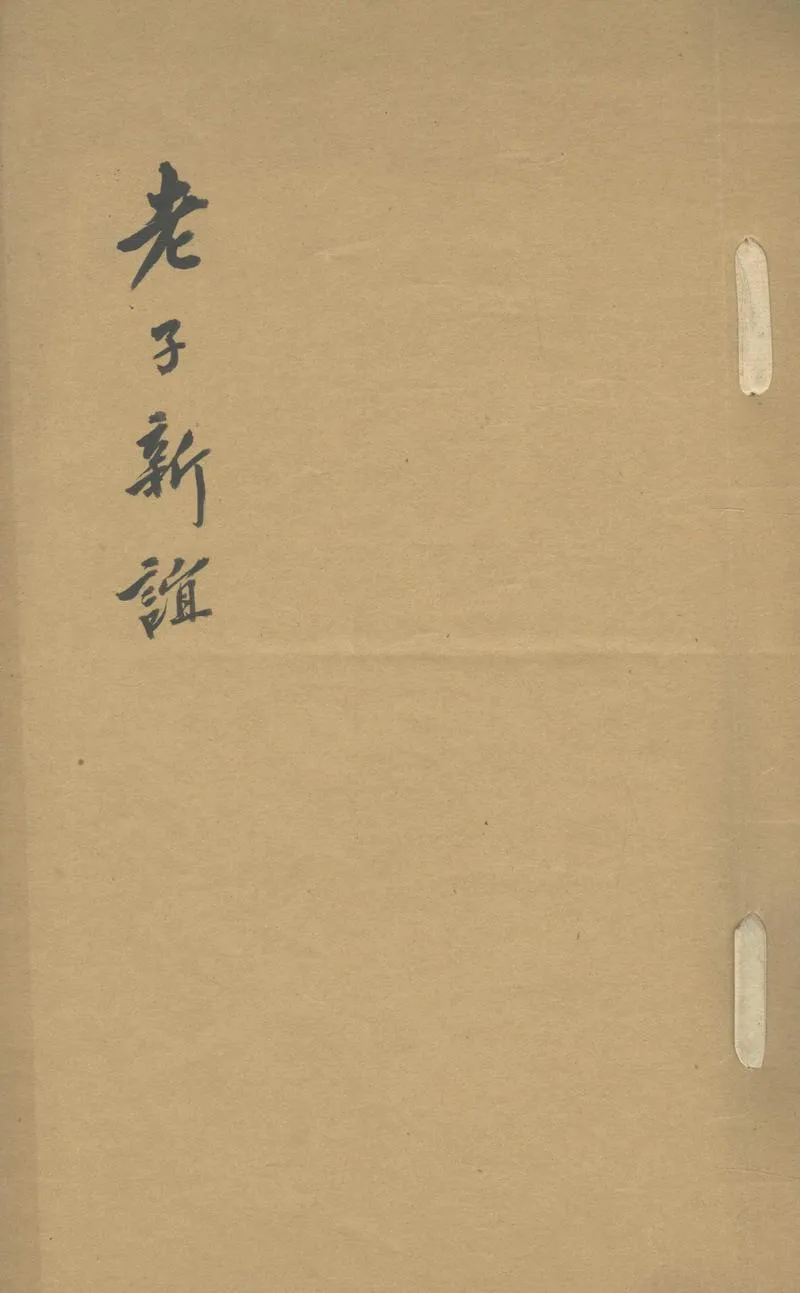 老子新誼